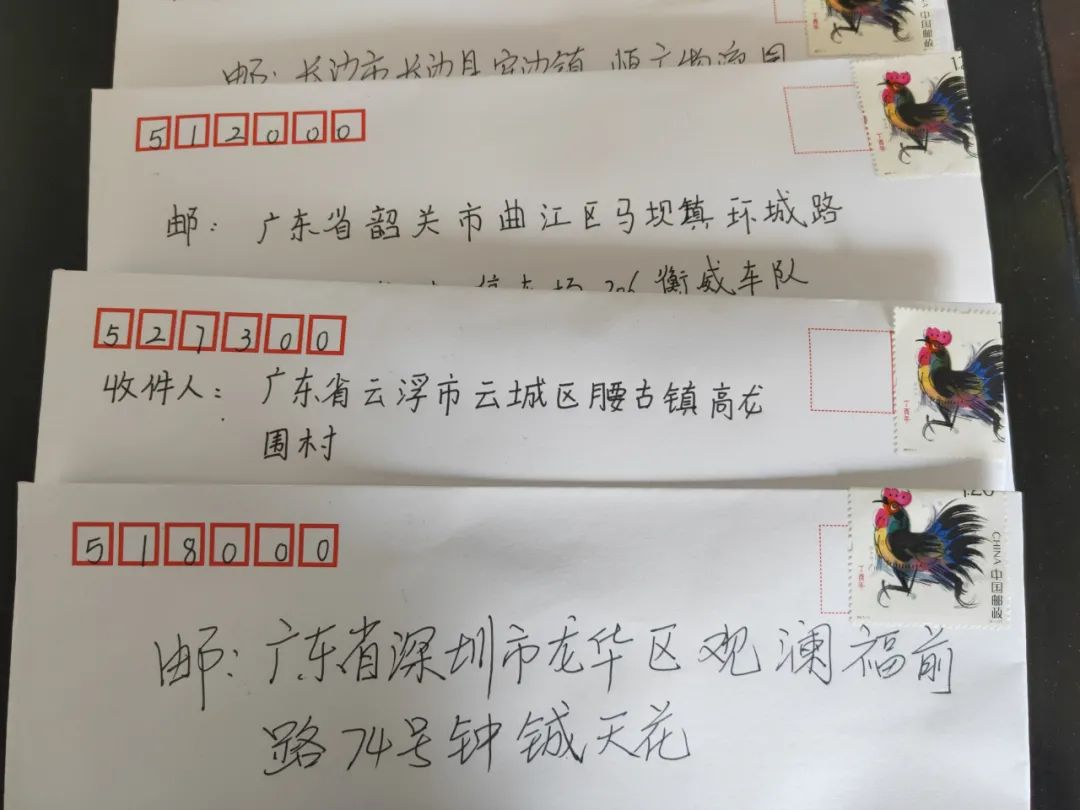 中国邮政
CHINA
邮：长沙市长沙县安沙镇 恒广物流园
512000
丁酉年
邮：广东省韶关市曲江区马坝镇环城路
停车场 206衡威车队
527300
丁酉年
收件人：广东省云浮市云城区腰古镇高龙
围村
518000
1.20
CHINA 中国邮政
丁酉年
邮：广东省深圳市龙华区观澜福前
路74号钟铖天花